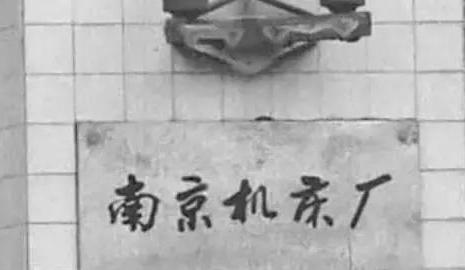 南京机床厂